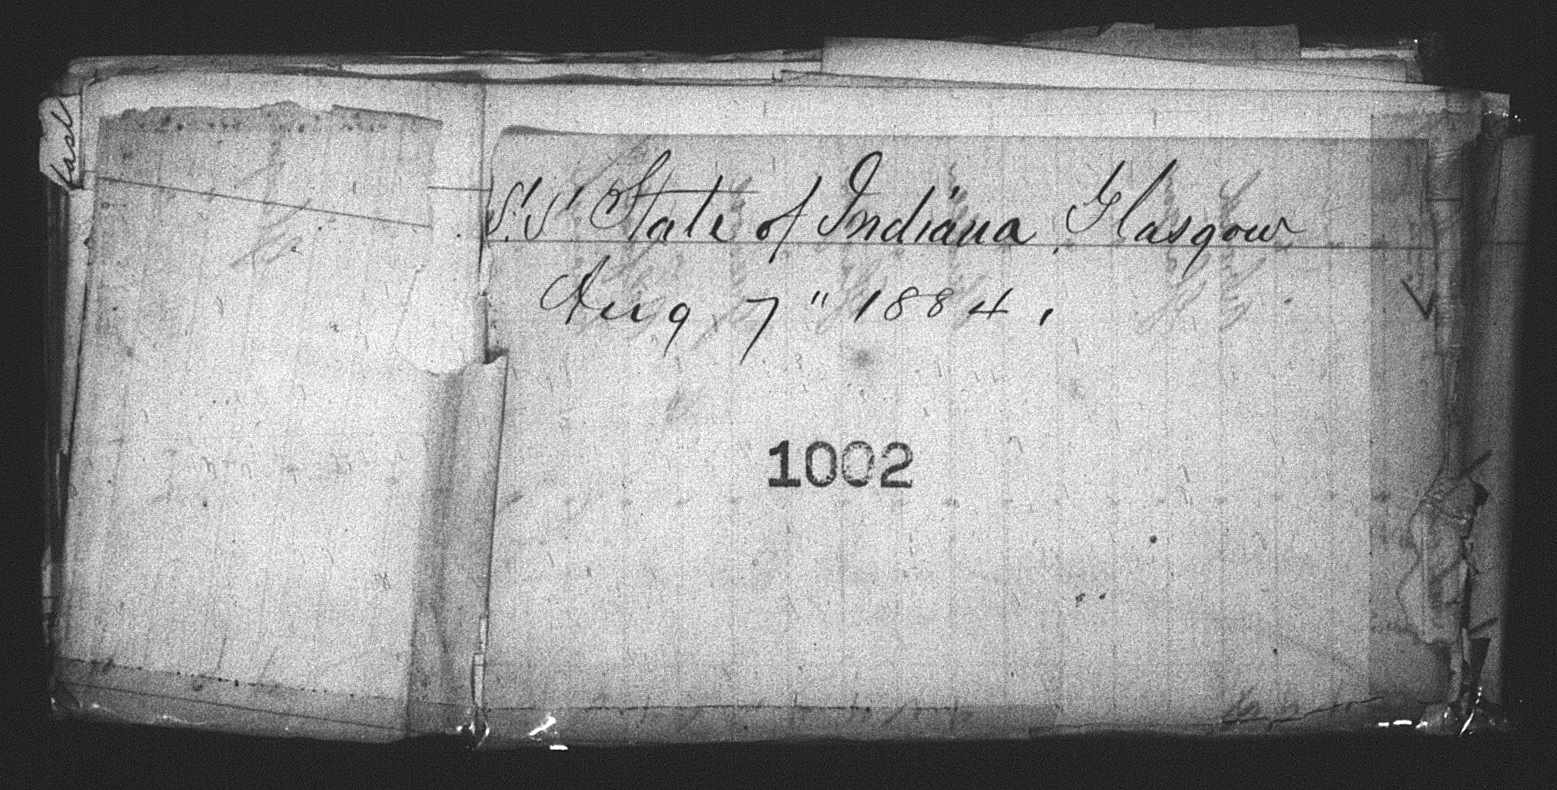 S.S. State of Indiana. Glasgow
Aug 7" 1884.
1002